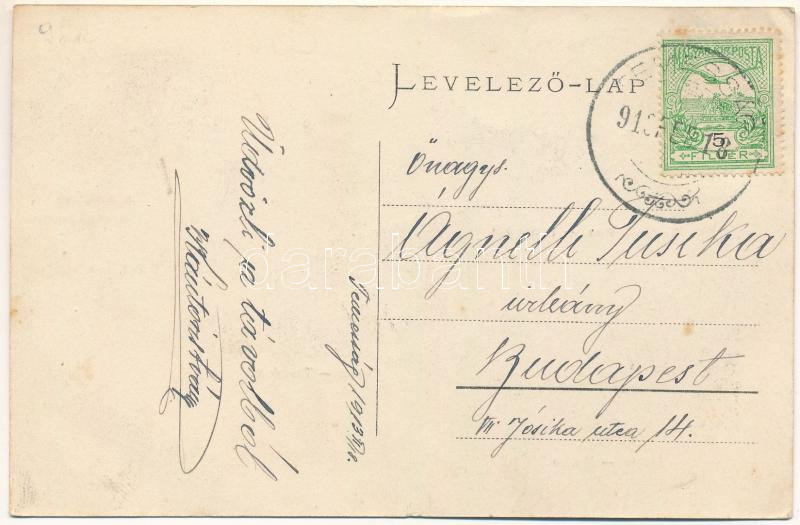 LEVELEZŐ-LAP
MAGYAR KIR. POSTA
5
FILLÉR
Őnagys.
Agnelli Juska
urleány
Budapest
VII. Jósika utca 14.
Üdvözli a távolból
1913
darabanth